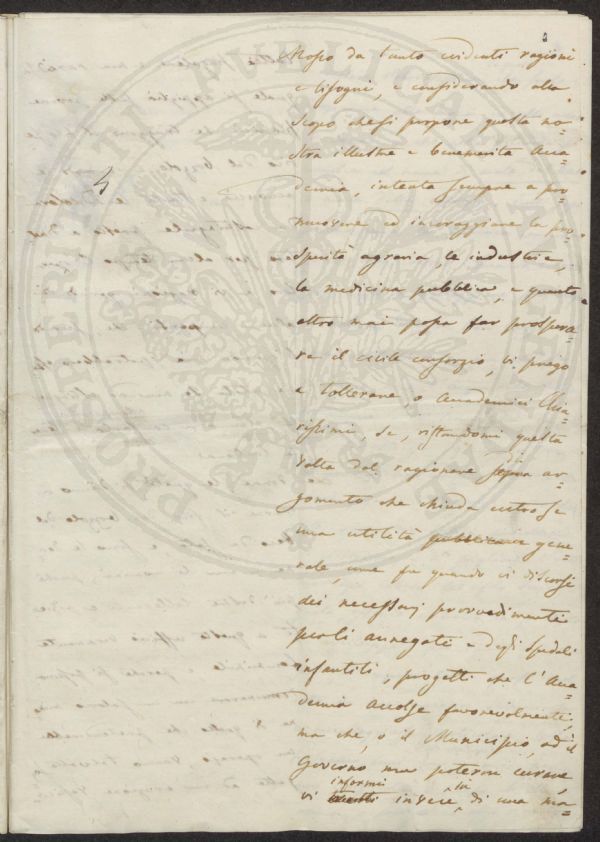 Mosso da tanto evidenti ragioni
e bisogni, e considerando allo
scopo che si propone questa no=
stra illustre e benemerita Acca=
demia, intenta sempre a pro=
muovere ed incoraggiare la pro=
sperità agraria, le industrie,
la medicina pubblica, e quanto
altro mai possa far prospera=
re il civile consorzio, vi prego
a tollerare o Accademici Chia=
rissimi, se, ristandomi questa
volta dal ragionare di ar=
gomento che chiuda entro se
una utilità pubblica gene=
rale, come fu quando vi discorsi
dei necessarj provvedimenti
per li annegati e degli spedali
infantili, progetti che l'Acca=
demia accolse favorevolmente,
ma che, o il Municipio, od il
Governo non poteron curare,
vi informi invece di una ma=